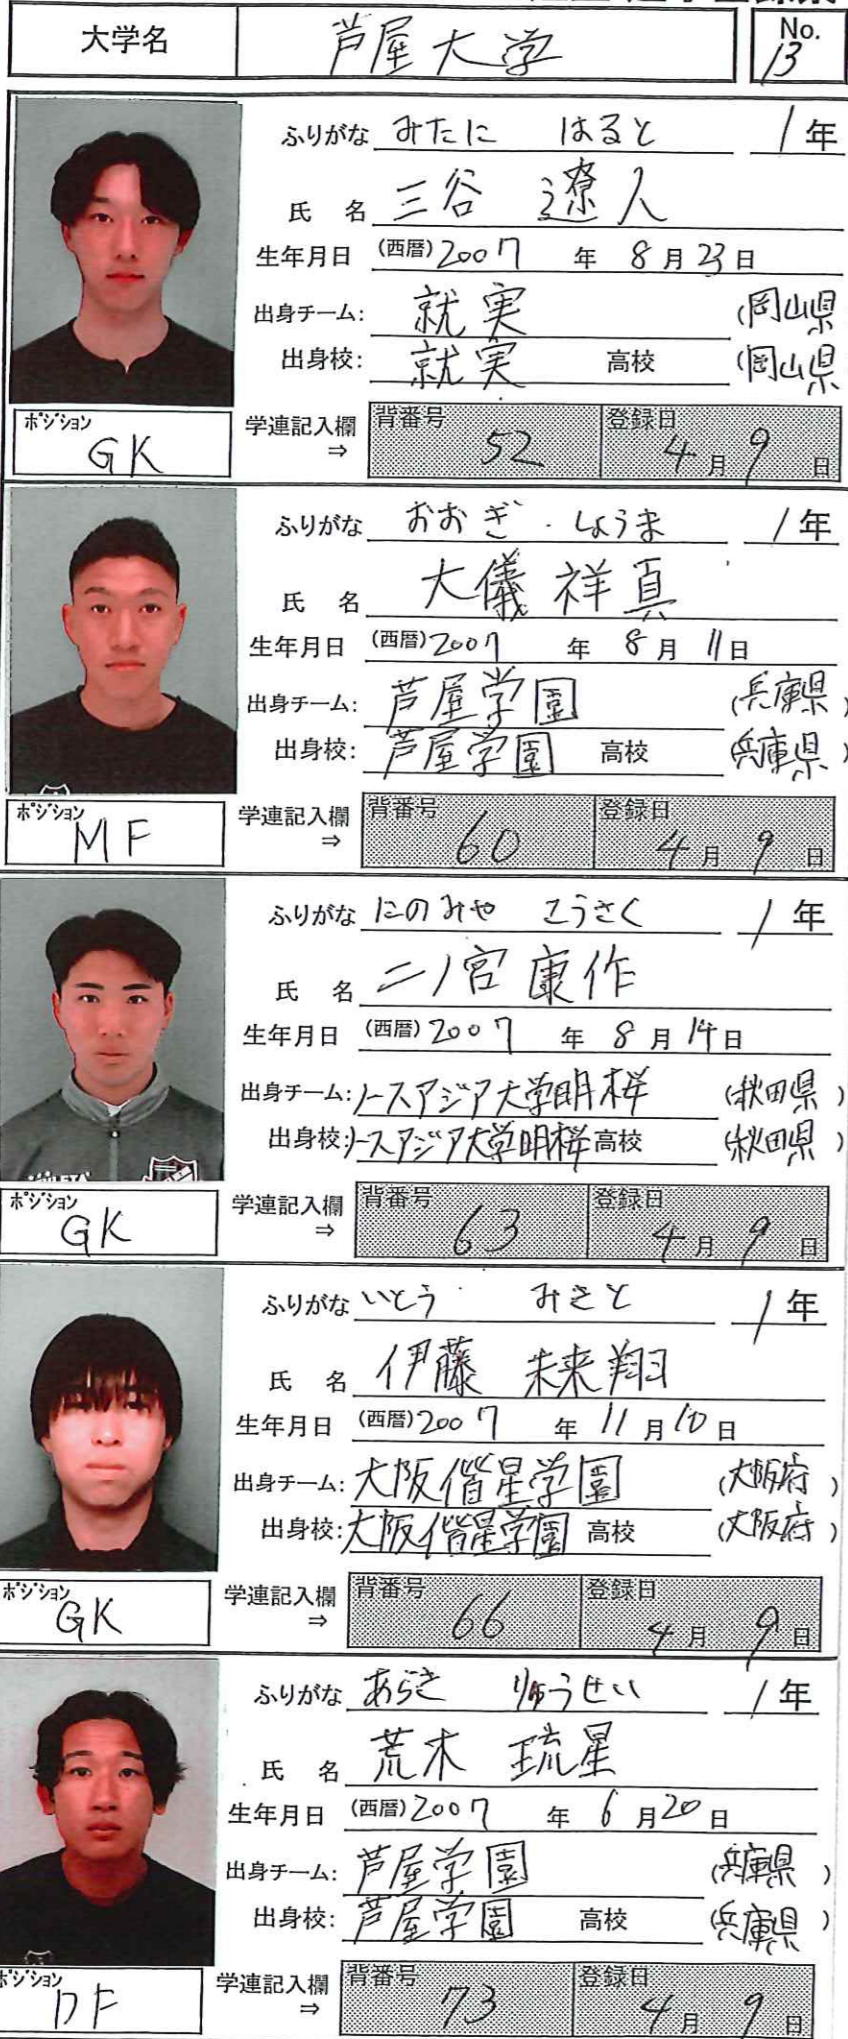 大学名 芦屋大学 No. 13
ふりがな みたに はると 1年
氏名 三谷 遼人
生年月日 (西暦)2007年 8月23日
出身チーム: 就実 (岡山県
出身校: 就実 高校 (岡山県
ポジション GK 学連記入欄⇒ 背番号 52 登録日 4月9日
ふりがな おおぎ しょうま 1年
氏名 大儀 祥真
生年月日 (西暦)2007年 8月11日
出身チーム: 芦屋学園 (兵庫県)
出身校: 芦屋学園 高校 (兵庫県)
ポジション MF 学連記入欄⇒ 背番号 60 登録日 4月9日
ふりがな にのみや こうさく 1年
氏名 二ノ宮 康作
生年月日 (西暦)2007年 8月14日
出身チーム: ノースアジア大学明桜 (秋田県)
出身校: ノースアジア大学明桜 高校 (秋田県)
ポジション GK 学連記入欄⇒ 背番号 63 登録日 4月9日
ふりがな いとう みきと 1年
氏名 伊藤 未来翔
生年月日 (西暦)2007年 11月10日
出身チーム: 大阪偕星学園 (大阪府)
出身校: 大阪偕星学園 高校 (大阪府)
ポジション GK 学連記入欄⇒ 背番号 66 登録日 4月9日
ふりがな あらき りゅうせい 1年
氏名 荒木 琉星
生年月日 (西暦)2007年 6月20日
出身チーム: 芦屋学園 (兵庫県)
出身校: 芦屋学園 高校 (兵庫県)
ポジション DF 学連記入欄⇒ 背番号 73 登録日 4月9日